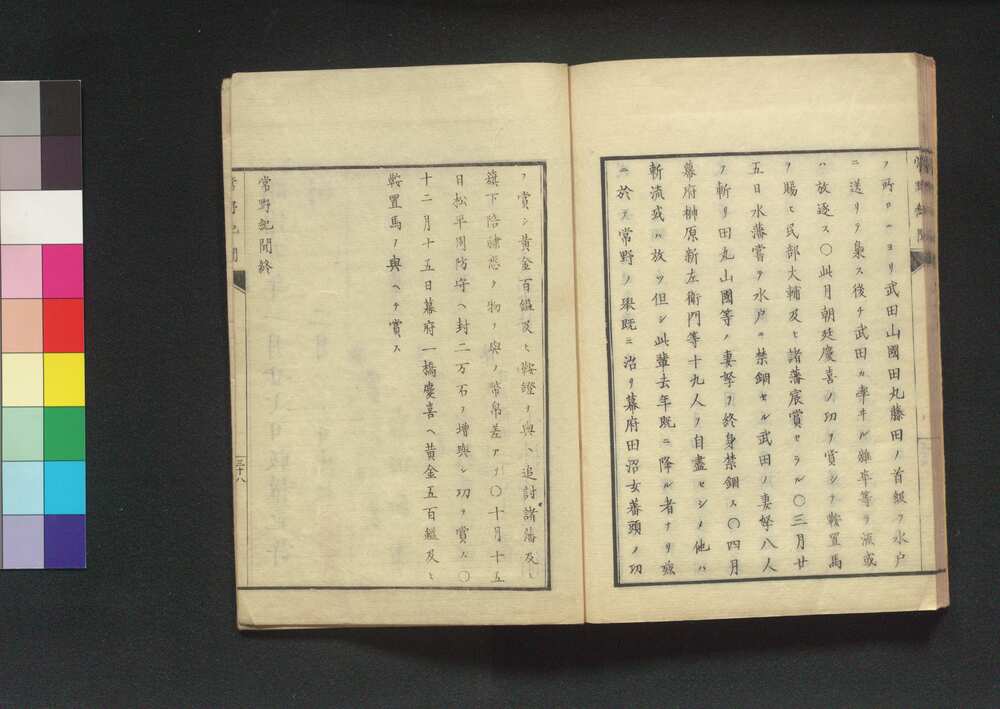 ノ所ロニヨリ武田山國田丸藤田ノ首級ヲ水戸
ニ送リテ梟ス後チ武田カ率ヰル雜卒等ヲ流或
ハ放逐ス〇此月朝廷慶喜ノ功ヲ賞シテ鞍置馬
ヲ賜ヒ民部大輔及ヒ諸藩宸賞セラル〇三月廿
五日水藩嘗テ水戸ニ禁錮セル武田ノ妻孥八人
ヲ斬リ田丸山國等ノ妻孥ヲ終身禁錮ス〇四月
幕府榊原新左衛門等十九人ヲ自盡セシメ他ハ
斬流或ハ放ツ但シ此輩去年既ニ降ル者ナリ
ニ於テ常野ノ乱既ニ治リ幕府田沼玄蕃頭ノ功
ヲ賞シ黄金百鎰及ヒ鞍鐙ヲ與ヘ追討諸藩及ヒ
旗下陪隷悉ク物ヲ與ノ幣帛差アリ〇十月十五
日松平周防守ヘ封二万石ヲ増與シ功ヲ賞ス〇
十二月十五日幕府一橋慶喜ヘ黄金五百鎰及ヒ
鞍置馬ヲ與ヘテ賞ス
常野紀聞終
三十八